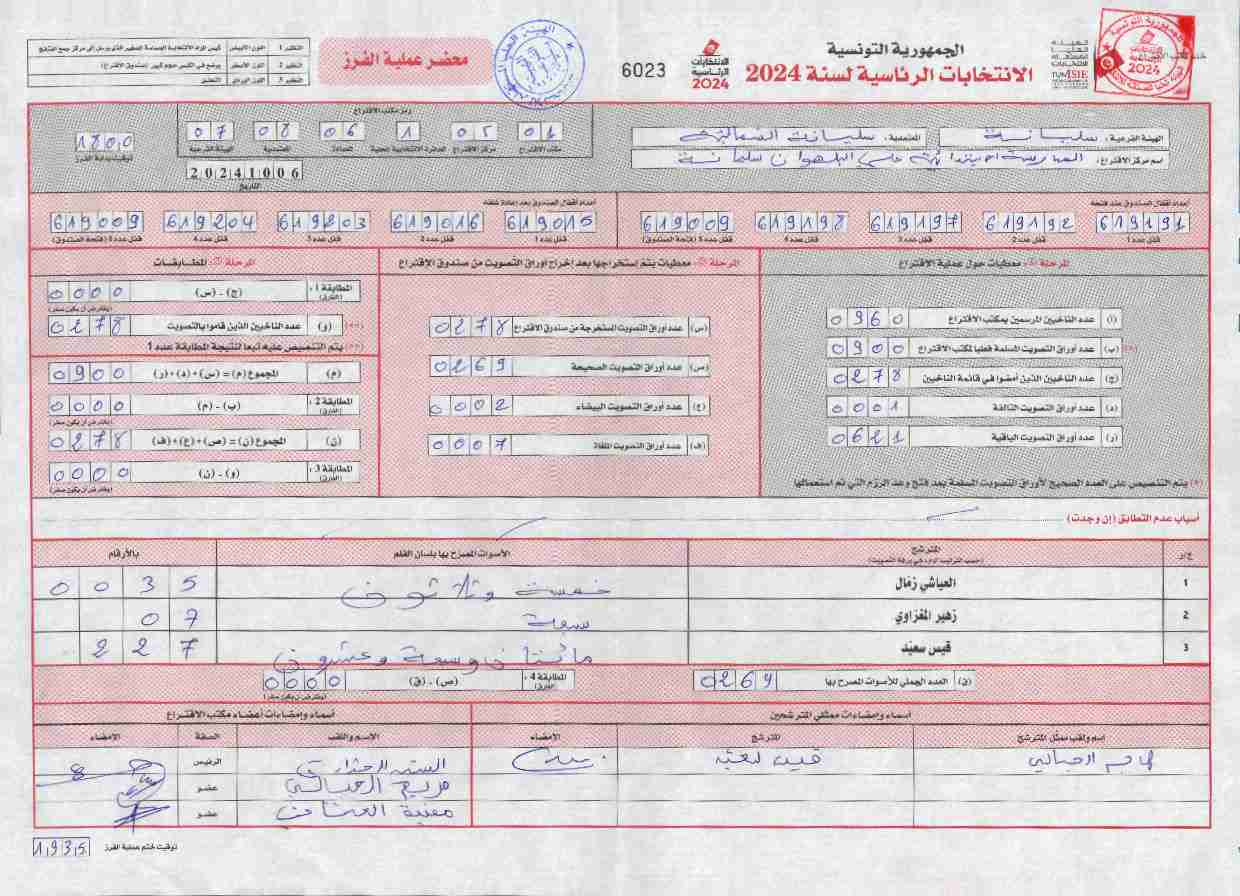 الجمهورية التونسية
الانتخابات الرئاسية لسنة 2024
الانتخابات الرئاسية 2024
6023
محضر عملية الفرز
النظير 1 اللون الأبيض
النظير 2 اللون الأصفر يوضع في الكيس مدوم كبير (صندوق الاقتراع)
النظير 3 اللون الوردي للحضر
الهيئة الفرعية: سليانة المعتمدية: سليانة الشمالية
اسم مركز الاقتراع: المدرسة الابتدائية علي البلهوان سليانة
رمز مكتب الاقتراع
01 05 1 06 08 07
مكتب الاقتراع مركز الاقتراع الدائرة الانتخابية المعنية العمادة المعتمدية الهيئة الفرعية
1800
توقيت بداية الفرز
20241006
التاريخ
أعداد أقفال الصندوق عند فتحه
619191 619192 619197 619198 619009
قفل عدد 1 قفل عدد 2 قفل عدد 3 قفل عدد 4 قفل عدد 5 (فتحة الصندوق)
أعداد أقفال الصندوق بعد إعادة غلقه
619015 619016 619203 619204 619009
قفل عدد 1 قفل عدد 2 قفل عدد 3 قفل عدد 4 قفل عدد 5 (فتحة الصندوق)
المرحلة 1: معطيات حول عملية الاقتراع
(أ) عدد الناخبين المرسمين بمكتب الاقتراع 0960
(ب) عدد أوراق التصويت المسلمة فعليا لمكتب الاقتراع 0900
(ج) عدد الناخبين الذين أمضوا في قائمة الناخبين 0278
(د) عدد أوراق التصويت التالفة 0001
(ر) عدد أوراق التصويت الباقية 0621
(*) يتم التنصيص على العدد الصحيح لأوراق التصويت المسلمة بعد فتح وعد الرزم التي تم استعمالها
المرحلة 2: معطيات يتم إستخراجها بعد إخراج أوراق التصويت من صندوق الاقتراع
(س) عدد أوراق التصويت المستخرجة من صندوق الاقتراع 0278
(ص) عدد أوراق التصويت الصحيحة 0269
(ع) عدد أوراق التصويت البيضاء 0002
(ف) عدد أوراق التصويت الملغاة 0007
المرحلة 3: المطابقات
المطابقة 1: (الفارق) (ج) - (س) 0000
(يفترض أن يكون صفر)
(**) (و) عدد الناخبين الذين قاموا بالتصويت 0278
(**) يتم التنصيص عليه تبعا لنتيجة المطابقة عدد 1
(م) المجموع (م) = (س)+(د)+(ر) 0900
المطابقة 2: (الفارق) (ب) - (م) 0000
(يفترض أن يكون صفر)
(ن) المجموع (ن) = (ص)+(ع)+(ف) 0278
المطابقة 3: (الفارق) (و) - (ن) 0000
(يفترض أن يكون صفر)
أسباب عدم التطابق (إن وجدت)
ع/ر المترشح الأصوات المصرح بها بلسان القلم بالأرقام
(حسب الترتيب الوارد في ورقة التصويت)
1 العياشي زمّال خمسة وثلاثون 0035
2 زهير المغزاوي سبعة 07
3 قيس سعيّد مائتان وسبعة وعشرون 227
(ق) العدد الجملي للأصوات المصرح بها 0269
المطابقة 4: (الفارق) (ص) - (ق) 0000
(يفترض أن يكون صفر)
أسماء وإمضاءات ممثلي المترشحين
اسم ولقب ممثل المترشح المترشح الإمضاء
قيس سعيد
أسماء وإمضاءات أعضاء مكتب الاقتراع
الاسم واللقب الصفة الإمضاء
الرئيس
عضو
عضو
توقيت ختم عملية الفرز 1935